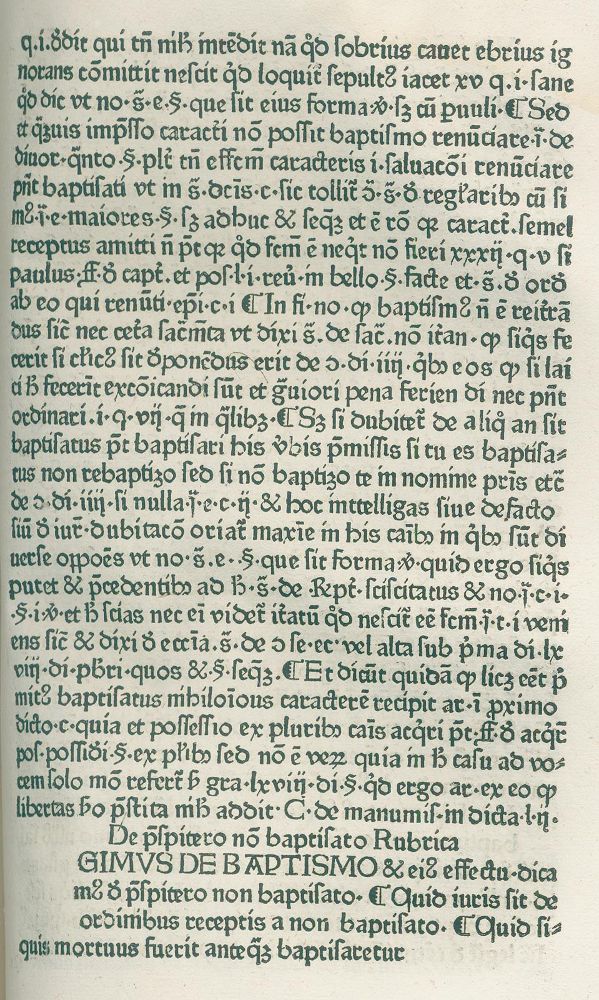 q.i.ꝺdit qui tñ nih̄ intēdit nā qd̄ sobrius cauet ebrius ig
norans cōmittit nescit qd̄ loquit̄ sepultꝰ iacet xv q.i.sane
qd̄ dic vt no.s̄.e.§.que sit eius forma.v̄.sꝫ cū puuli.¶Sed
et qꝫuis imp̄sso caract̄i nō possit baptismo renūciare.i̅.de
diuor.qn̄to.§.plt̄ tn̄ effcm̄ caracteris i.saluacōi renūciare
pn̄t baptisati vt in s̄.dcīs.c.sic tollit̄
receptus amitti n̄ p̄t
paulus.ff.ꝺ capt̄.et pos.l.i.reū.in bello.§.facte et.s̄.ꝺ orꝺ
ab eo qui renūti.ep̄i.c.i ¶In fi.no.ꝙ baptismꝰ n̄ ē reit̄rā
dus sic̄ nec cet̄a sac̄m̄ta vt dixi s̄.de sac̄.nō it̄an.ꝙ siq̄s fe
cerit si cl̄icꝰ sit ꝺponēdus erit de ɔ.di.iiij.qb̄o eos ꝙ si lai
ci h̄ fecerīt excōicandi sūt et ḡuiori pena ferien di nec pn̄t
ordinari.i.q.vij.q̄ in q̄libꝫ.¶Sꝫ si dubitet̄ de aliq̄ an sit
baptisatus p̄t baptisari his v̄bis p̄missis si tu es baptisa-
tus non rebaptizo sed si nō baptizo te in nomine pr̄is etc̄
de ɔ.di.iiij.si nulla.i̅.e.c.ij.& hoc inttelligas siue defacto
siū ꝺ iur̄.dubitacō oriat̄ maxīe in his caībo in qb̄o sūt di
uerse opp̄oēs vt no.s̄.e.§.que sit forma.v̄.quid ergo siq̄s
putet & p̄cedentibo ad h̄.s̄.de Rpt̄.sciscitatus & no.i̅.c.i.
§.i.v̄.et h̄ scias nec eī videt̄ it̄atū qd̄ nescit̄ eē fcm̄.i̅.t.i veni
ens sic̄ & dixi ꝺ eccīa.s̄.de ɔse.ec̄ vel alta sub p̄ma di.lx
viij.di.pb̄ri.quos &.§.seqꝫ.¶Et dicūt quidā ꝙ licꝫ eēt p̄
mitꝰ baptisatus nihiloīous caracterē recipit ar.ī proximo
dicto.c.quia et possessio ex pluribo caīs acq̄ri p̄t.ff.ꝺ acq̄r̄
pos.possidi.§.ex pl̄ibo sed nō ē veꝝ quia in h̄ casu ad vo-
cem solo mō refert̄ h̄ gra.lxviij.di.§.qd̄ ergo ar.ex eo ꝙ
libertas h̄o p̄stita nih̄ addit.C.de manumis.in dicta.l.ij.
De p̄sp̄itero nō baptisato Rubrica
GIMVS DE BAPTISMO & eiꝰ effectu.dica
mꝰ ꝺ p̄sp̄itero non baptisato.¶Quid iuris sit de
ordinibus receptis a non baptisato.¶Quid si-
quis mortuus fuerit anteqꝫ baptisaretur